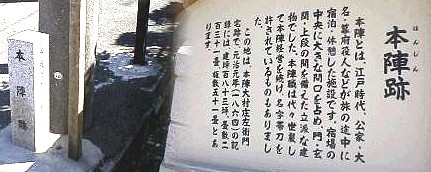 本陣跡
ほんじんあと
本陣跡
本陣とは、江戸時代、公家・大
名・幕府役人などが旅の途中に
宿泊・休憩した施設です。宿場の
中央に大きな間口を占め、門・玄
関・上段の間を備えた立派な建
物でした。本陣職は代々世襲し
て本陣経営を続け、名字帯刀を
許されているものもありまし
た。
この地は、本陣大村庄左衛門
宅跡で、元治元年(一八六四)の記
録には、建坪百三十三坪、畳数二
百三十一畳、板数五十一畳とあ
ります。